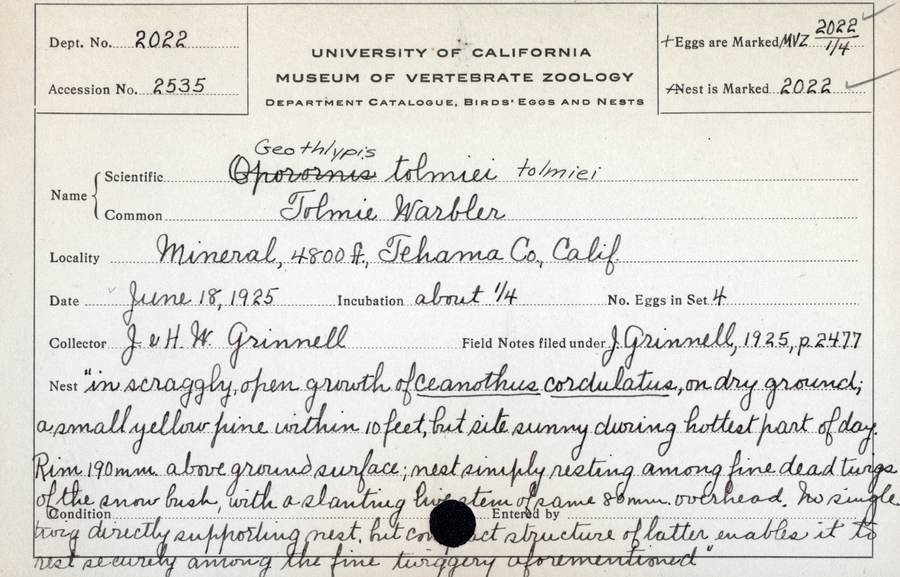 Dept. No. 2022
Accession No. 2535
UNIVERSITY OF CALIFORNIA
MUSEUM OF VERTEBRATE ZOOLOGY
DEPARTMENT CATALOGUE, BIRDS' EGGS AND NESTS
+Eggs are Marked MVZ 2022 1/4
Nest is Marked 2022
Geothlypis
Name Scientific Oporornis tolmiei tolmiei
Common Tolmie Warbler
Locality Mineral, 4800 ft., Tehama Co., Calif.
Date June 18, 1925 Incubation about 1/4 No. Eggs in Set 4
Collector J. & H. W. Grinnell Field Notes filed under J. Grinnell, 1925, p. 2477
Nest "in scraggly, open growth of Ceanothus cordulatus, on dry ground;
a small yellow pine within 10 feet, but site sunny during hottest part of day.
Rim 190 mm. above ground surface; nest simply resting among fine dead twigs
of the snow bush, with a slanting live stem of same 80 mm. overhead. No single
Condition Entered by
twig directly supporting nest, but compact structure of latter enables it to
rest securely among the fine twiggery aforementioned"